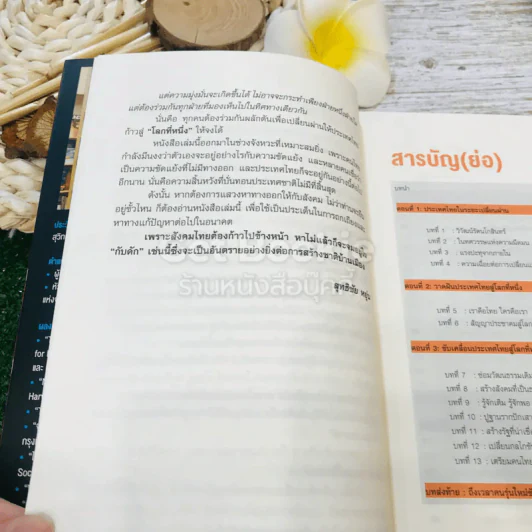 แต่ความมุ่งมั่นจะเกิดขึ้นได้ ไม่อาจจะกระทำเพียงฝ่ายหนึ่งฝ่ายใด
แต่ต้องร่วมกันทุกฝ่ายที่มองเห็นไปในทิศทางเดียวกัน
นั่นคือ ทุกคนต้องร่วมกันผลักดันเพื่อเปลี่ยนผ่านให้ประเทศไทย
ก้าวสู่ “โลกที่หนึ่ง” ให้จงได้
หนังสือเล่มนี้ออกมาในช่วงจังหวะที่เหมาะสมยิ่ง เพราะคนไทย
กำลังมึนงงว่าตัวเองจะอยู่อย่างไรกับความขัดแย้ง และหลายคน
เป็นความขัดแย้งที่ไม่มีทางออก และประเทศไทยก็จะอยู่กันอย่างนี้
อีกนาน นั่นคือความสิ้นหวังที่บั่นทอนประเทศชาติไม่มีที่สิ้นสุด
ดังนั้น หากต้องการแสวงหาทางออกให้กับสังคม ไม่ว่าท่าน
อยู่ขั้วไหน ก็ต้องอ่านหนังสือเล่มนี้ เพื่อใช้เป็นประเด็นในการถกเถียง
หาทางแก้ปัญหาต่อไปในอนาคต
เพราะสังคมไทยต้องก้าวไปข้างหน้า หาไม่แล้วก็จะจมอยู่ใน
“กับดัก” เช่นนี้ซึ่งจะเป็นอันตรายอย่างยิ่งต่อการสร้างชาติบ้านเมือง
สุทธิชัย หยุ่น
ร้านหนังสือบุ๊คคี้
สารบัญ(ย่อ)
บทนำ
ตอนที่ 1: ประเทศไทยในระยะเปลี่ยนผ่าน
บทที่ 1 : วิวัฒน์รัตนโกสินทร์
บทที่ 2 : ในทศวรรษแห่งความมืดมน
บทที่ 3 : แรงปะทุจากภายใน
บทที่ 4 : ความเฉื่อยต่อการเปลี่ยนแปลง
ตอนที่ 2: วาดฝันประเทศไทยสู่โลกที่หนึ่ง
บทที่ 5 : เราคือไทย ใครคือเรา
บทที่ 6 : สัญญาประชาคมสู่โลกที่
ตอนที่ 3: ขับเคลื่อนประเทศไทยสู่โลกที่
บทที่ 7 : ซ่อมวัฒนธรรมเดิม
บทที่ 8 : สร้างสังคมที่เป็น
บทที่ 9 : รู้จักเติม รู้จักพอ
บทที่ 10 : ปูฐานรากปักเสา
บทที่ 11 : สร้างรัฐที่น่าเชื่อ
บทที่ 12 : เปลี่ยนกลไกขับ
บทที่ 13 : เตรียมคนไทย
บทส่งท้าย : ถึงเวลาคนรุ่นใหม่